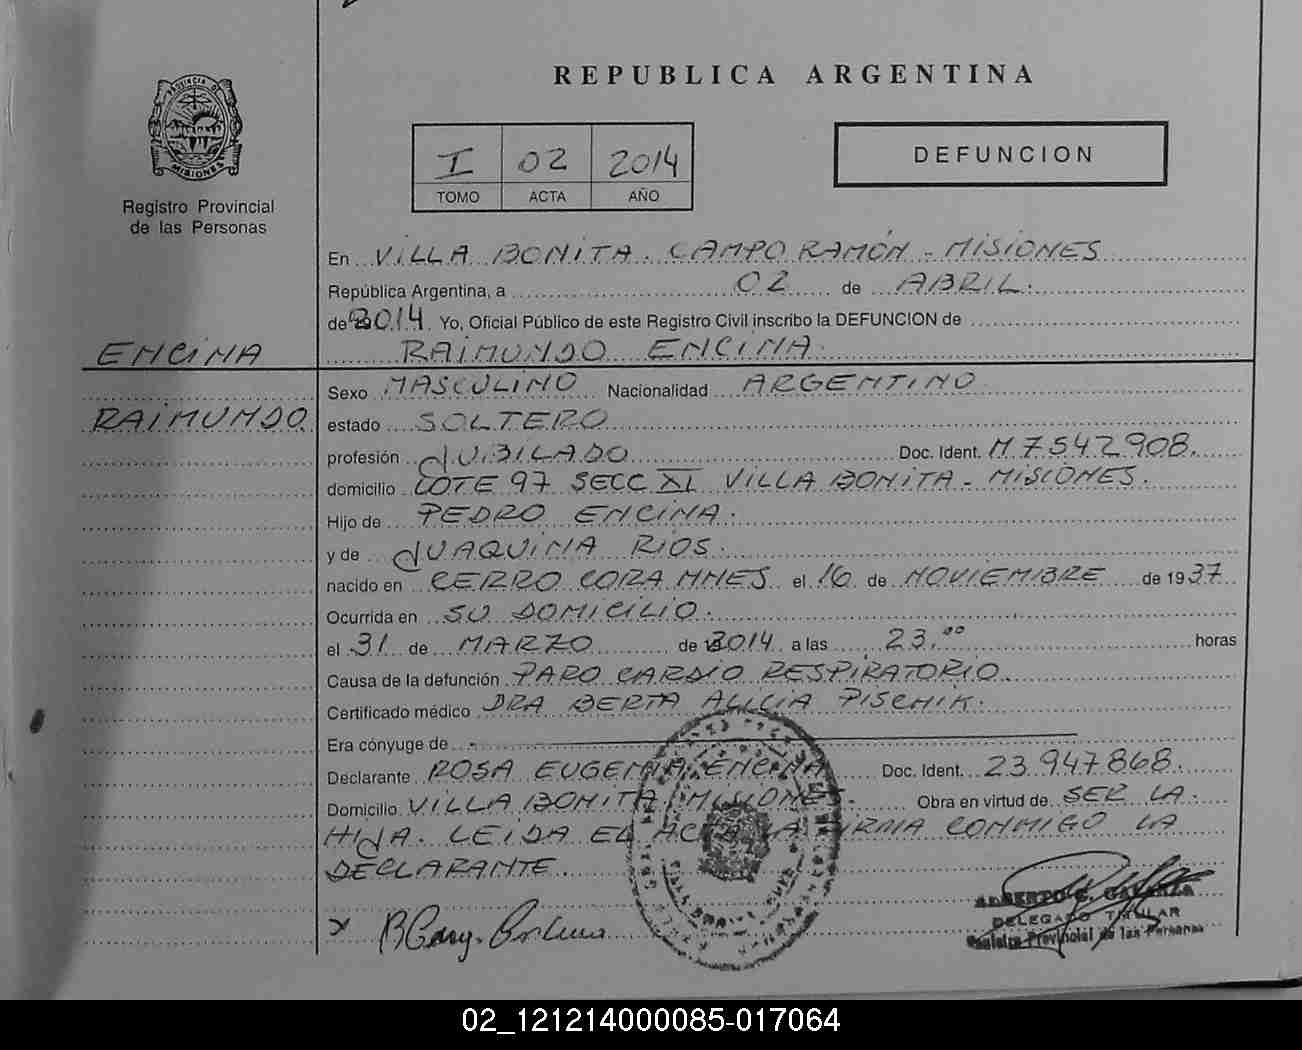 REPUBLICA ARGENTINA
PROVINCIA DE MISIONES
Registro Provincial
de las Personas
I 02 2014
TOMO ACTA AÑO
DEFUNCION
En VILLA BONITA. CAMPO RAMÓN - MISIONES
República Argentina, a 02 de ABRIL.
de 2014. Yo, Oficial Público de este Registro Civil inscribo la DEFUNCION de
ENCINA RAIMUNDO ENCINA.
Sexo MASCULINO Nacionalidad ARGENTINO
RAIMUNDO estado SOLTERO
profesión JUBILADO Doc. Ident. M 7542908.
domicilio LOTE 97 SECC XI VILLA BONITA - MISIONES.
Hijo de PEDRO ENCINA.
y de JUAQUINA RIOS.
nacido en CERRO CORA MNES el 16 de NOVIEMBRE de 1937
Ocurrida en SU DOMICILIO.
el 31 de MARZO de 2014 a las 23.00 horas
Causa de la defunción PARO CARDIO RESPIRATORIO.
Certificado médico DRA BERTA ALICIA PISCHIK.
Era cónyuge de -
Declarante ROSA EUGENIA ENCINA Doc. Ident. 23.947868.
Domicilio VILLA BONITA MISIONES. Obra en virtud de SER LA
HIJA. LEIDA EL ACTA LA FIRMA CONMIGO LA
DECLARANTE.
x
DELEGADO TITULAR
Registro Provincial de las Personas
02_121214000085-017064